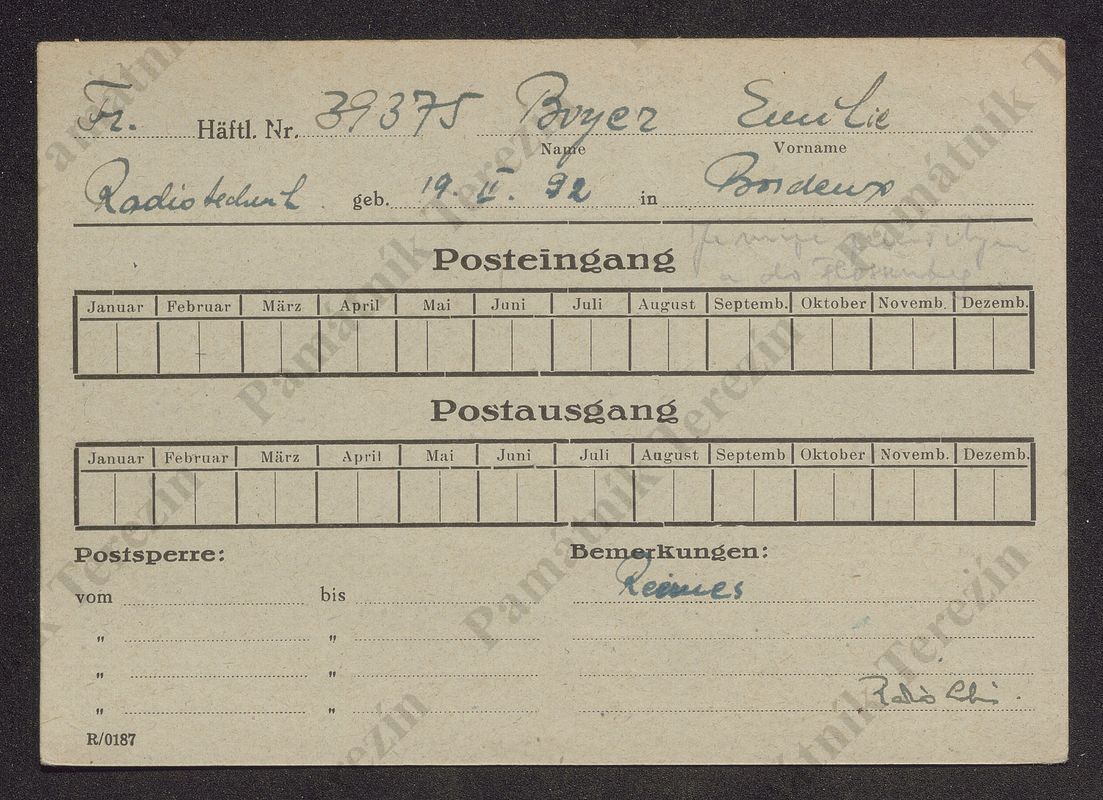 Fr. Häftl. Nr. 39375 Boyer Emilie
Name Vorname
Radiotechnik geb. 19. II. 92 in Bordeux
Posteingang
Januar Februar März April Mai Juni Juli August Septemb. Oktober Novemb. Dezemb.
Postausgang
Januar Februar März April Mai Juni Juli August Septemb Oktober Novemb. Dezemb.
Postsperre: Bemerkungen:
vom bis
" "
" "
" "
R/0187
Památník Terezín